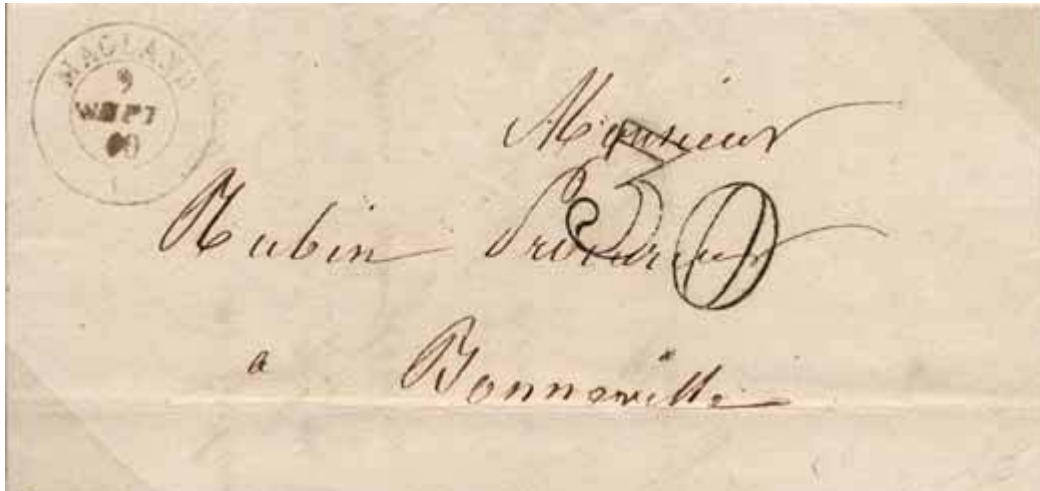 MAGLAND
9
SEPT
60
Monsieur
30
Rubin Procureur
a Bonneville